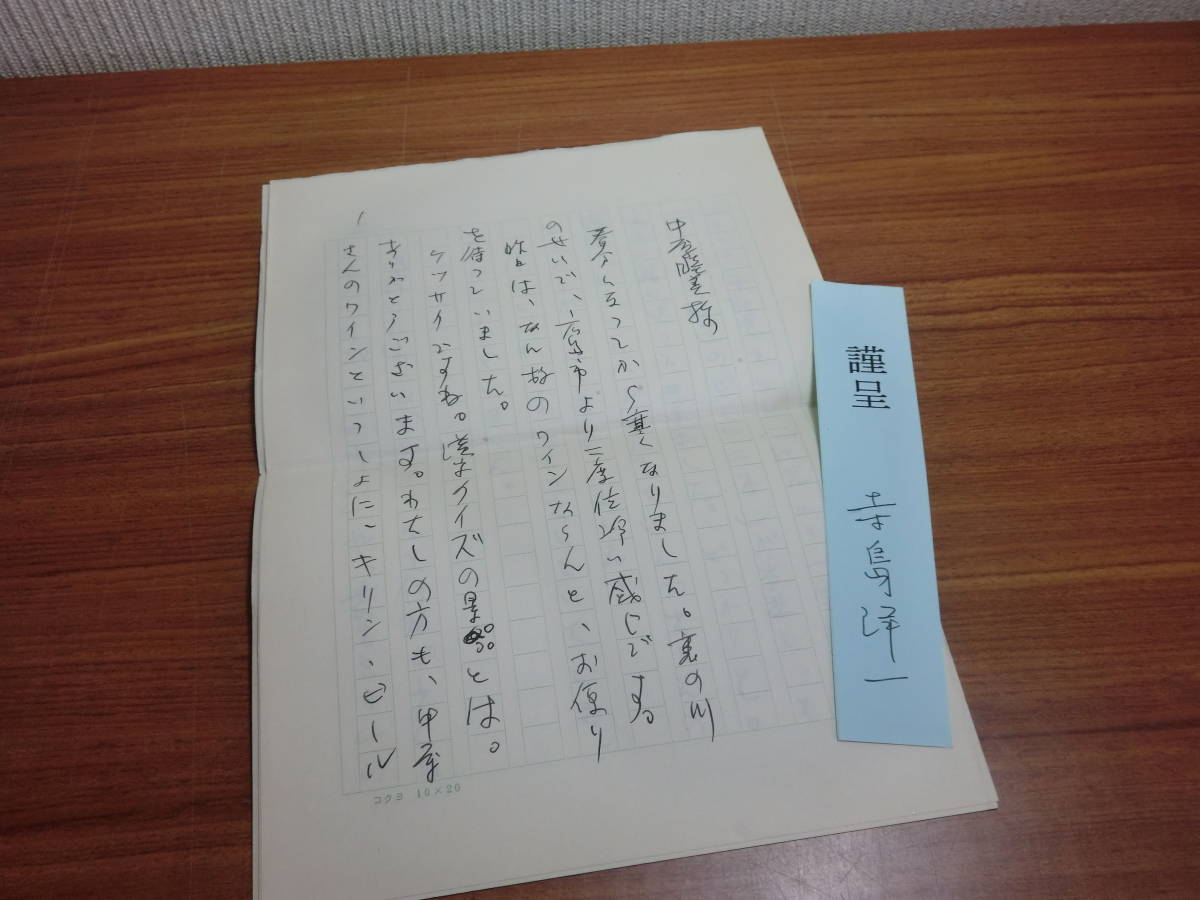 謹呈
寺島洋一
中原 様
なってから寒くなりました。裏の川
のせいで、市より二度位冷い感じです。
昨日は、なん故のワインならんと、お便り
を待っていました。
ケッサクですね。漢字クイズの景品とは。
ありがとうございます。わたしの方も、甲府
さんのワインといっしょに、キリン、ビール
1
コクヨ 10×20